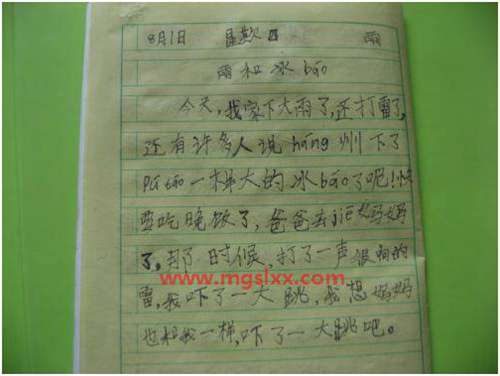 8月1日 星期日 雨
雨和冰báo
今天,我家下大雨了,还打雷了,
还有许多人说háng州下了
pú táo一样大的冰báo了呢!快
要吃晚饭了,爸爸去jiē妈妈
了,到了时候,打了一声很响的
www.mgslxx.com
雷,我吓了一大跳,我想妈妈
也和我一样,吓了一大跳吧。